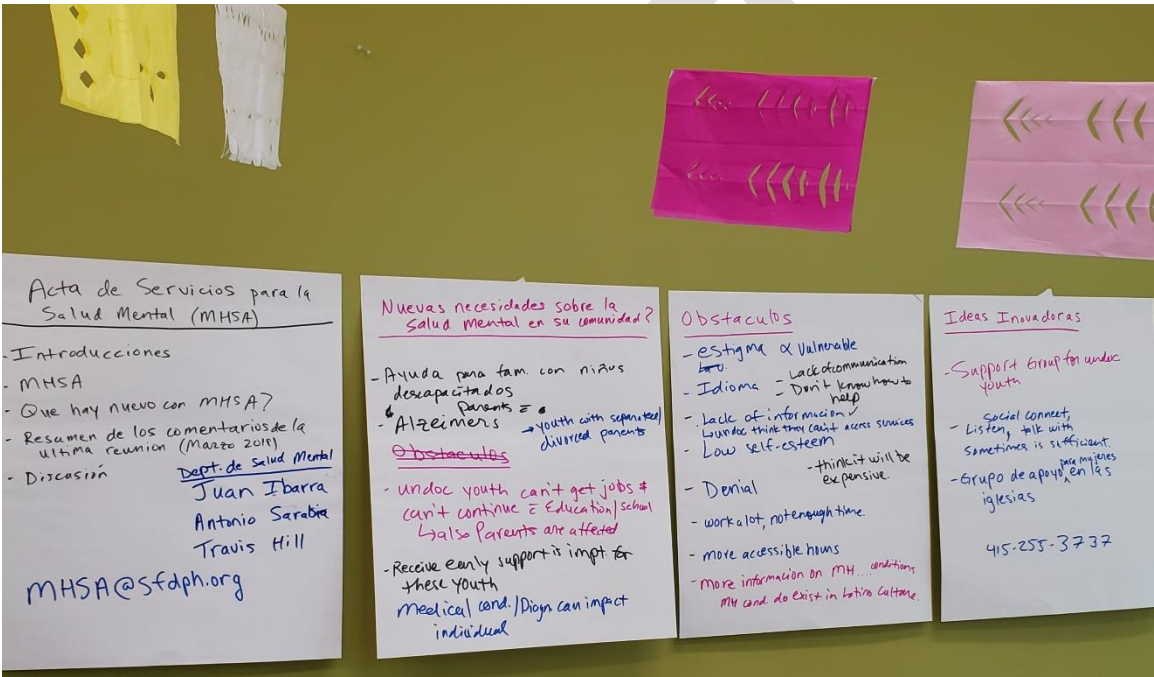 Acta de Servicios para la
Salud Mental (MHSA)
- Introducciones
- MHSA
- Que hay nuevo con MHSA?
- Resumen de los comentarios de la
ultima reunion (Marzo 2018)
- Discusión
Dept. de Salud Mental
Juan Ibarra
Antonio Sarabia
Travis Hill
MHSA@sfdph.org
Nuevas necesidades sobre la
Salud Mental en su comunidad?
- Ayuda para fam. con niños
descapacitados
Parents =
- Alzeimers → youth with separated/
divorced parents
Obstaculos
- undoc youth can't get jobs &
can't continue c̄ Education/School
↳ also Parents are affected
- Receive early support is impt. for
these youth
Medical cond./Diagn can impact
individual
Obstaculos
- estigma & Vulnerable
- Idioma - Lack of communication
- Don't know how to
help
- Lack of informacion ✓
↳ undoc think they can't access services
- Low self-esteem
- think it will be
expensive.
- Denial
- work a lot, not enough time.
- more accessible hours
- more informacion on MH.... conditions
MH cond. do exist in Latino Culture.
Ideas Inovadoras
- Support Group for undoc
youth
Social connect,
- Listen, talk with
Sometimes is sufficient.
- Grupo de apoyo para mujeres en las
iglesias
415-255-3737